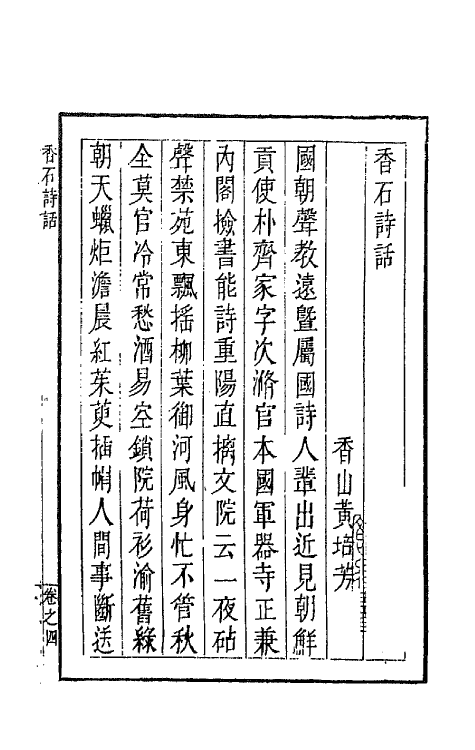 香石詩話
香山黃培芳
國朝聲教遠曁屬國詩人輩出近見朝鮮
貢使朴齊家字次脩官本國軍器寺正兼
內閣檢書能詩重陽直摛文院云一夜砧
聲禁苑東飄摇柳葉御河風身忙不管秋
全莫官冷常愁酒易空鎖院荷衫渝舊綠
朝天蠟炬澹晨紅茱萸揷帽人間事斷送
香石詩話
卷之四